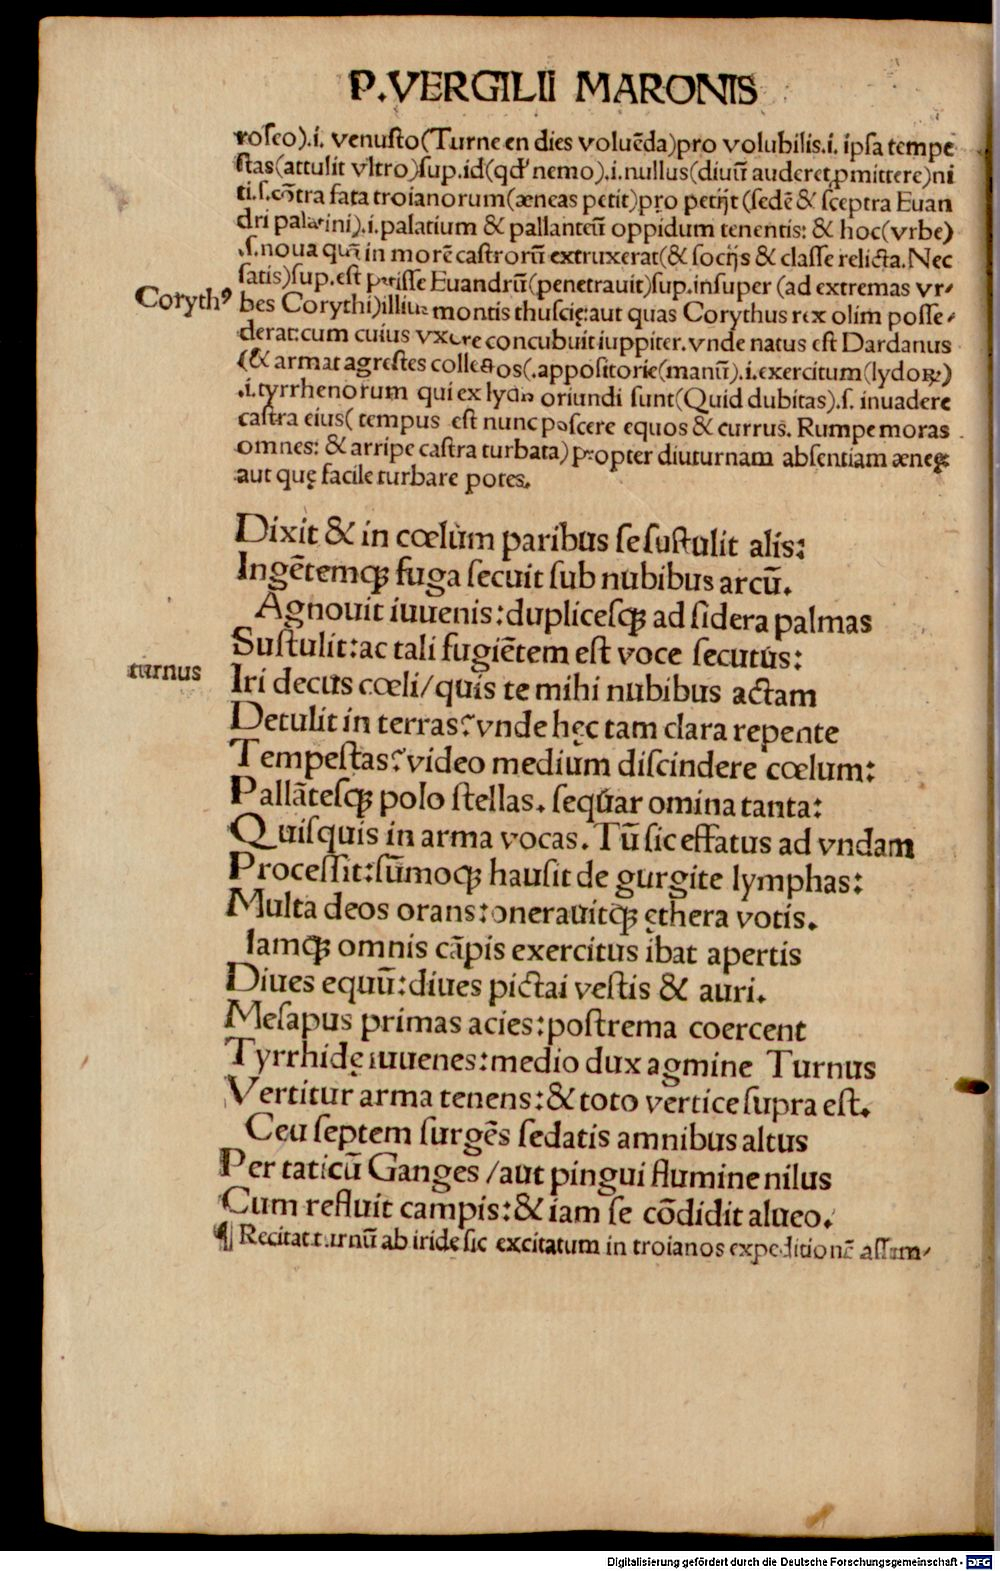 P.VERGILII MARONIS
roſeo).i. venuſto(Turne en dies voluẽda)pro volubilis.i. ipſa tempe
ſtas(attulit vltro)ſup.id(qđ nemo).i.nullus(diuũ auderet ꝓmittere)ni
ti.ſ.cõtra fata troianorum(æneas petit)pro petijt (ſedẽ & ſceptra Euan
dri palatini).i.palatium & pallanteũ oppidum tenentis: & hoc(vrbe)
.ſ.noua quã in morẽ caſtrorũ extruxerat(& ſocijs & claſſe relicta.Nec
ſatis)ſup.eſt petiſſe Euandrũ(penetrauit)ſup.inſuper (ad extremas vr-
Coryth⁹
bes Corythi)illius montis thuſcię:aut quas Corythus rex olim poſſe-
derat:cum cuius vxore concubuit iuppiter.vnde natus eſt Dardanus
(& armat agreſtes collectos(.appoſitorie(manũ).i.exercitum(lydoꝝ)
.i.tyrrhenorum qui ex lydis oriundi ſunt(Quid dubitas).ſ. inuadere
caſtra eius( tempus eſt nunc poſcere equos & currus. Rumpe moras
omnes: & arripe caſtra turbata)propter diuturnam abſentiam æneę:
aut quę facile turbare potes.
Dixit & in cœlum paribus ſe ſuſtulit alis:
Ingẽtemqꝫ fuga ſecuit ſub nubibus arcũ.
Agnouit iuuenis:dupliceſqꝫ ad ſidera palmas
Suſtulit:ac tali fugiẽtem eſt voce ſecutus:
turnus
Iri decus cœli/quis te mihi nubibus actam
Detulit in terras?vnde hęc tam clara repente
Tempeſtas?video medium diſcindere cœlum:
Pallãteſqꝫ polo ſtellas. ſequar omina tanta:
Quiſquis in arma vocas. Tũ ſic effatus ad vndam
Proceſſit:ſũmoqꝫ hauſit de gurgite lymphas:
Multa deos orans:onerauitqꝫ ęthera votis.
Iamqꝫ omnis cãpis exercitus ibat apertis
Diues equũ:diues pictai veſtis & auri.
Meſapus primas acies:poſtrema coercent
Tyrrhidę iuuenes:medio dux agmine Turnus
Vertitur arma tenens:& toto vertice ſupra eſt.
Ceu ſeptem ſurgẽs ſedatis amnibus altus
Per taticũ Ganges /aut pingui flumine nilus
Cum refluit campis:& iam ſe cõdidit alueo.
¶ Recitat turnũ ab iride ſic excitatum in troianos expeditionẽ aſſum-
Digitalisierung gefördert durch die Deutsche Forschungsgemeinschaft - DFG